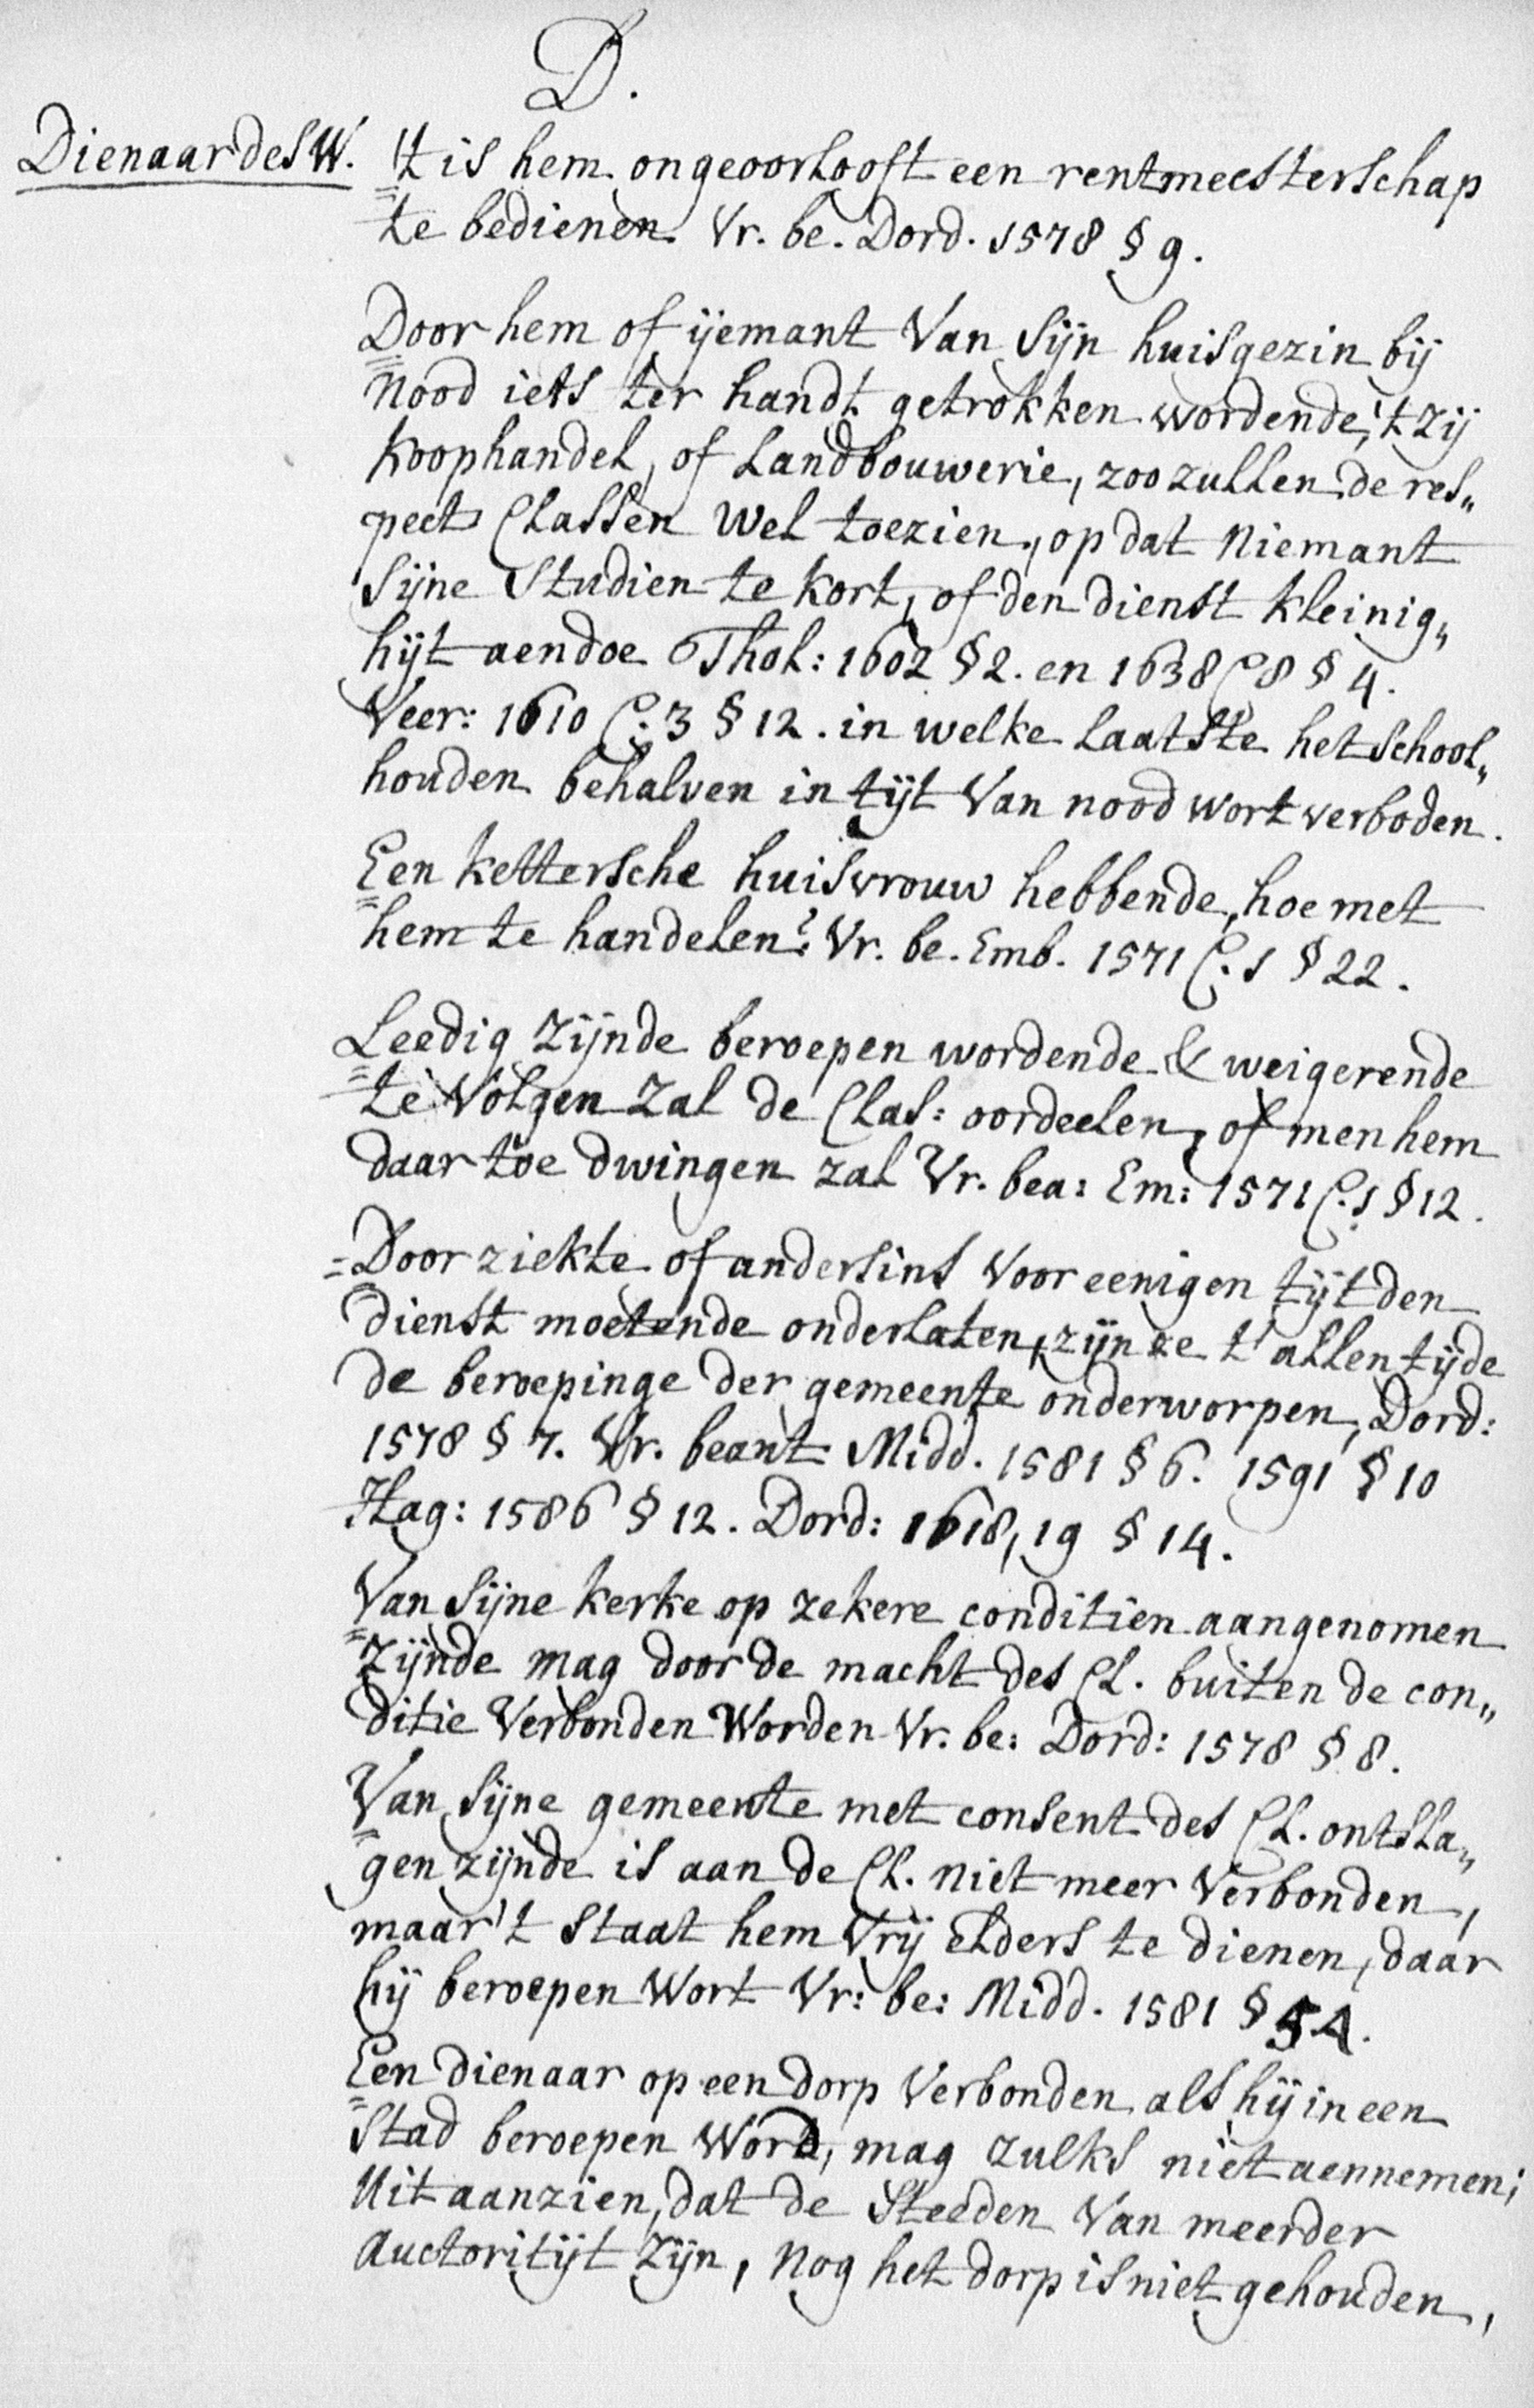 D.
Dienaar des W. 't is hem ongeoorlooft een rentmeesterschap
te bedienen. Vr. be. Dord. 1578 § 9.
Door hem of ijemant Van Sijn huisgezin bij
Nood iets ter handt getrokken wordende, 't zij
Koophandel, of Landbouwerie, zoo zullen de res„
pect Classen wel toezien, op dat Niemant
Sijne Studien te kort, of den dienst kleinig„
hijt aendoe Thol: 1602 § 2. en 1638 C 8 § 4.
Veer: 1610 C. 3 § 12. in welke laatste het School„
houden behalven in tijt Van nood wort verboden.
Een kettersche huisvrouw hebbende, hoe met
hem te handelen? Vr. be. Emb. 1571 C. 1 § 22.
Leedig Zijnde beroepen wordende & weigerende
te Volgen Zal de Clas: oordeelen, of men hem
daar toe dwingen zal Vr. bea: Em: 1571 C. 1 § 12.
Door ziekte of andersins Voor eenigen tijt den
dienst moetende onderlaten, zijn ze t' allen tijde
de beroepinge der gemeente onderworpen, Dord:
1578 § 7. Vr. beant Midd. 1581 § 6. 1591 § 10
Hag: 1586 § 12. Dord: 1618, 19 § 14.
Van Sijne kerke op zekere conditien aangenomen
Zijnde mag door de macht des Cl. buiten de con„
ditie Verbonden Worden Vr. be: Dord: 1578 § 8.
Van Sijne gemeente met consent des Cl. ontsla„
gen zijnde is aan de Cl. niet meer Verbonden,
maar 't Staat hem Vrij elders te dienen, daar
hij beroepen Wort Vr: be: Midd. 1581 § 54.
Een dienaar op een dorp Verbonden als hij in een
Stad beroepen Word, mag zulks niet aennemen;
Uit aanzien, dat de Steeden Van meerder
Auctoritijt Zijn, Nog het dorp is niet gehouden,